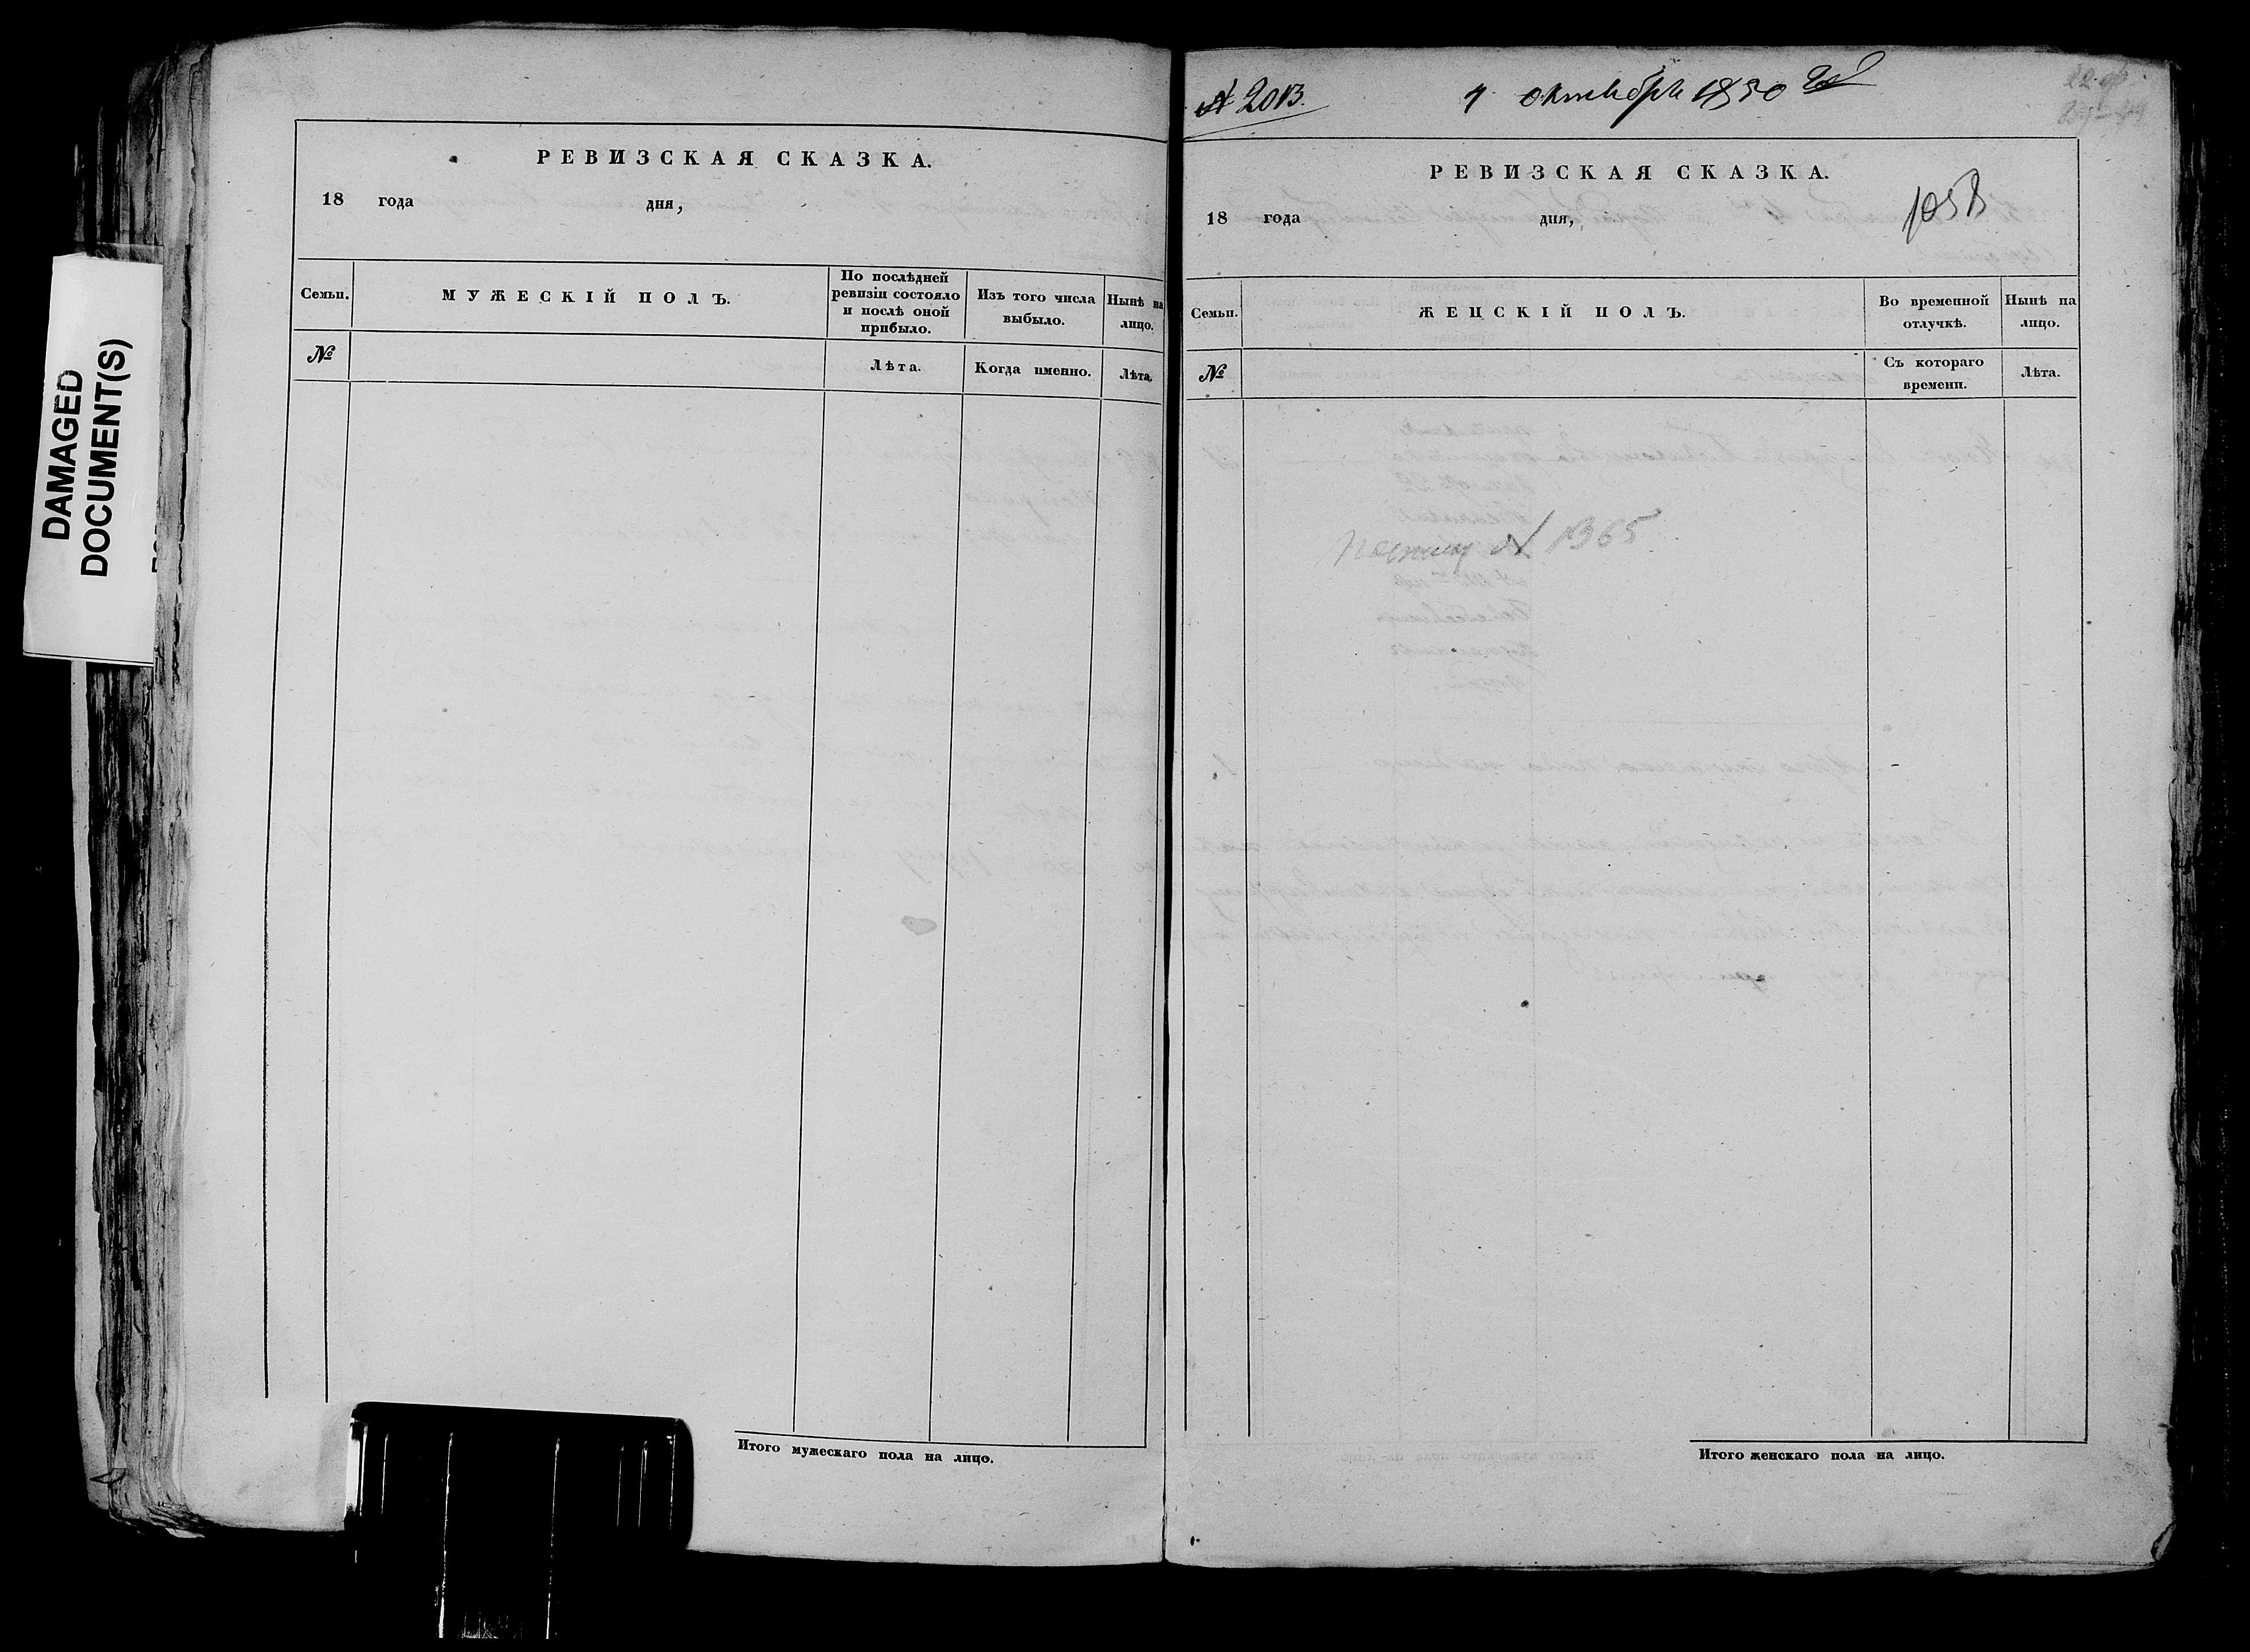 DAMAGED
DOCUMENT(S)
РЕВИЗСКАЯ СКАЗКА.
18 года дня,
Семьи.
МУЖЕСКІЙ ПОЛЪ.
По послѣдней
ревизіи состояло
и послѣ оной
прибыло.
Изъ того числа
выбыло.
Нынѣ на
лицо.
№
Лѣта.
Когда именно.
Лѣта.
Итого мужескаго пола на лицо.
№ 2013.
7 октября 1850
РЕВИЗСКАЯ СКАЗКА.
18 года дня,
Семьи.
ЖЕНСКІЙ ПОЛЪ.
Во временной
отлучкѣ.
Нынѣ на
лицо.
№
Съ котораго
времени.
Лѣта.
№ 1365
Итого женскаго пола на лицо.